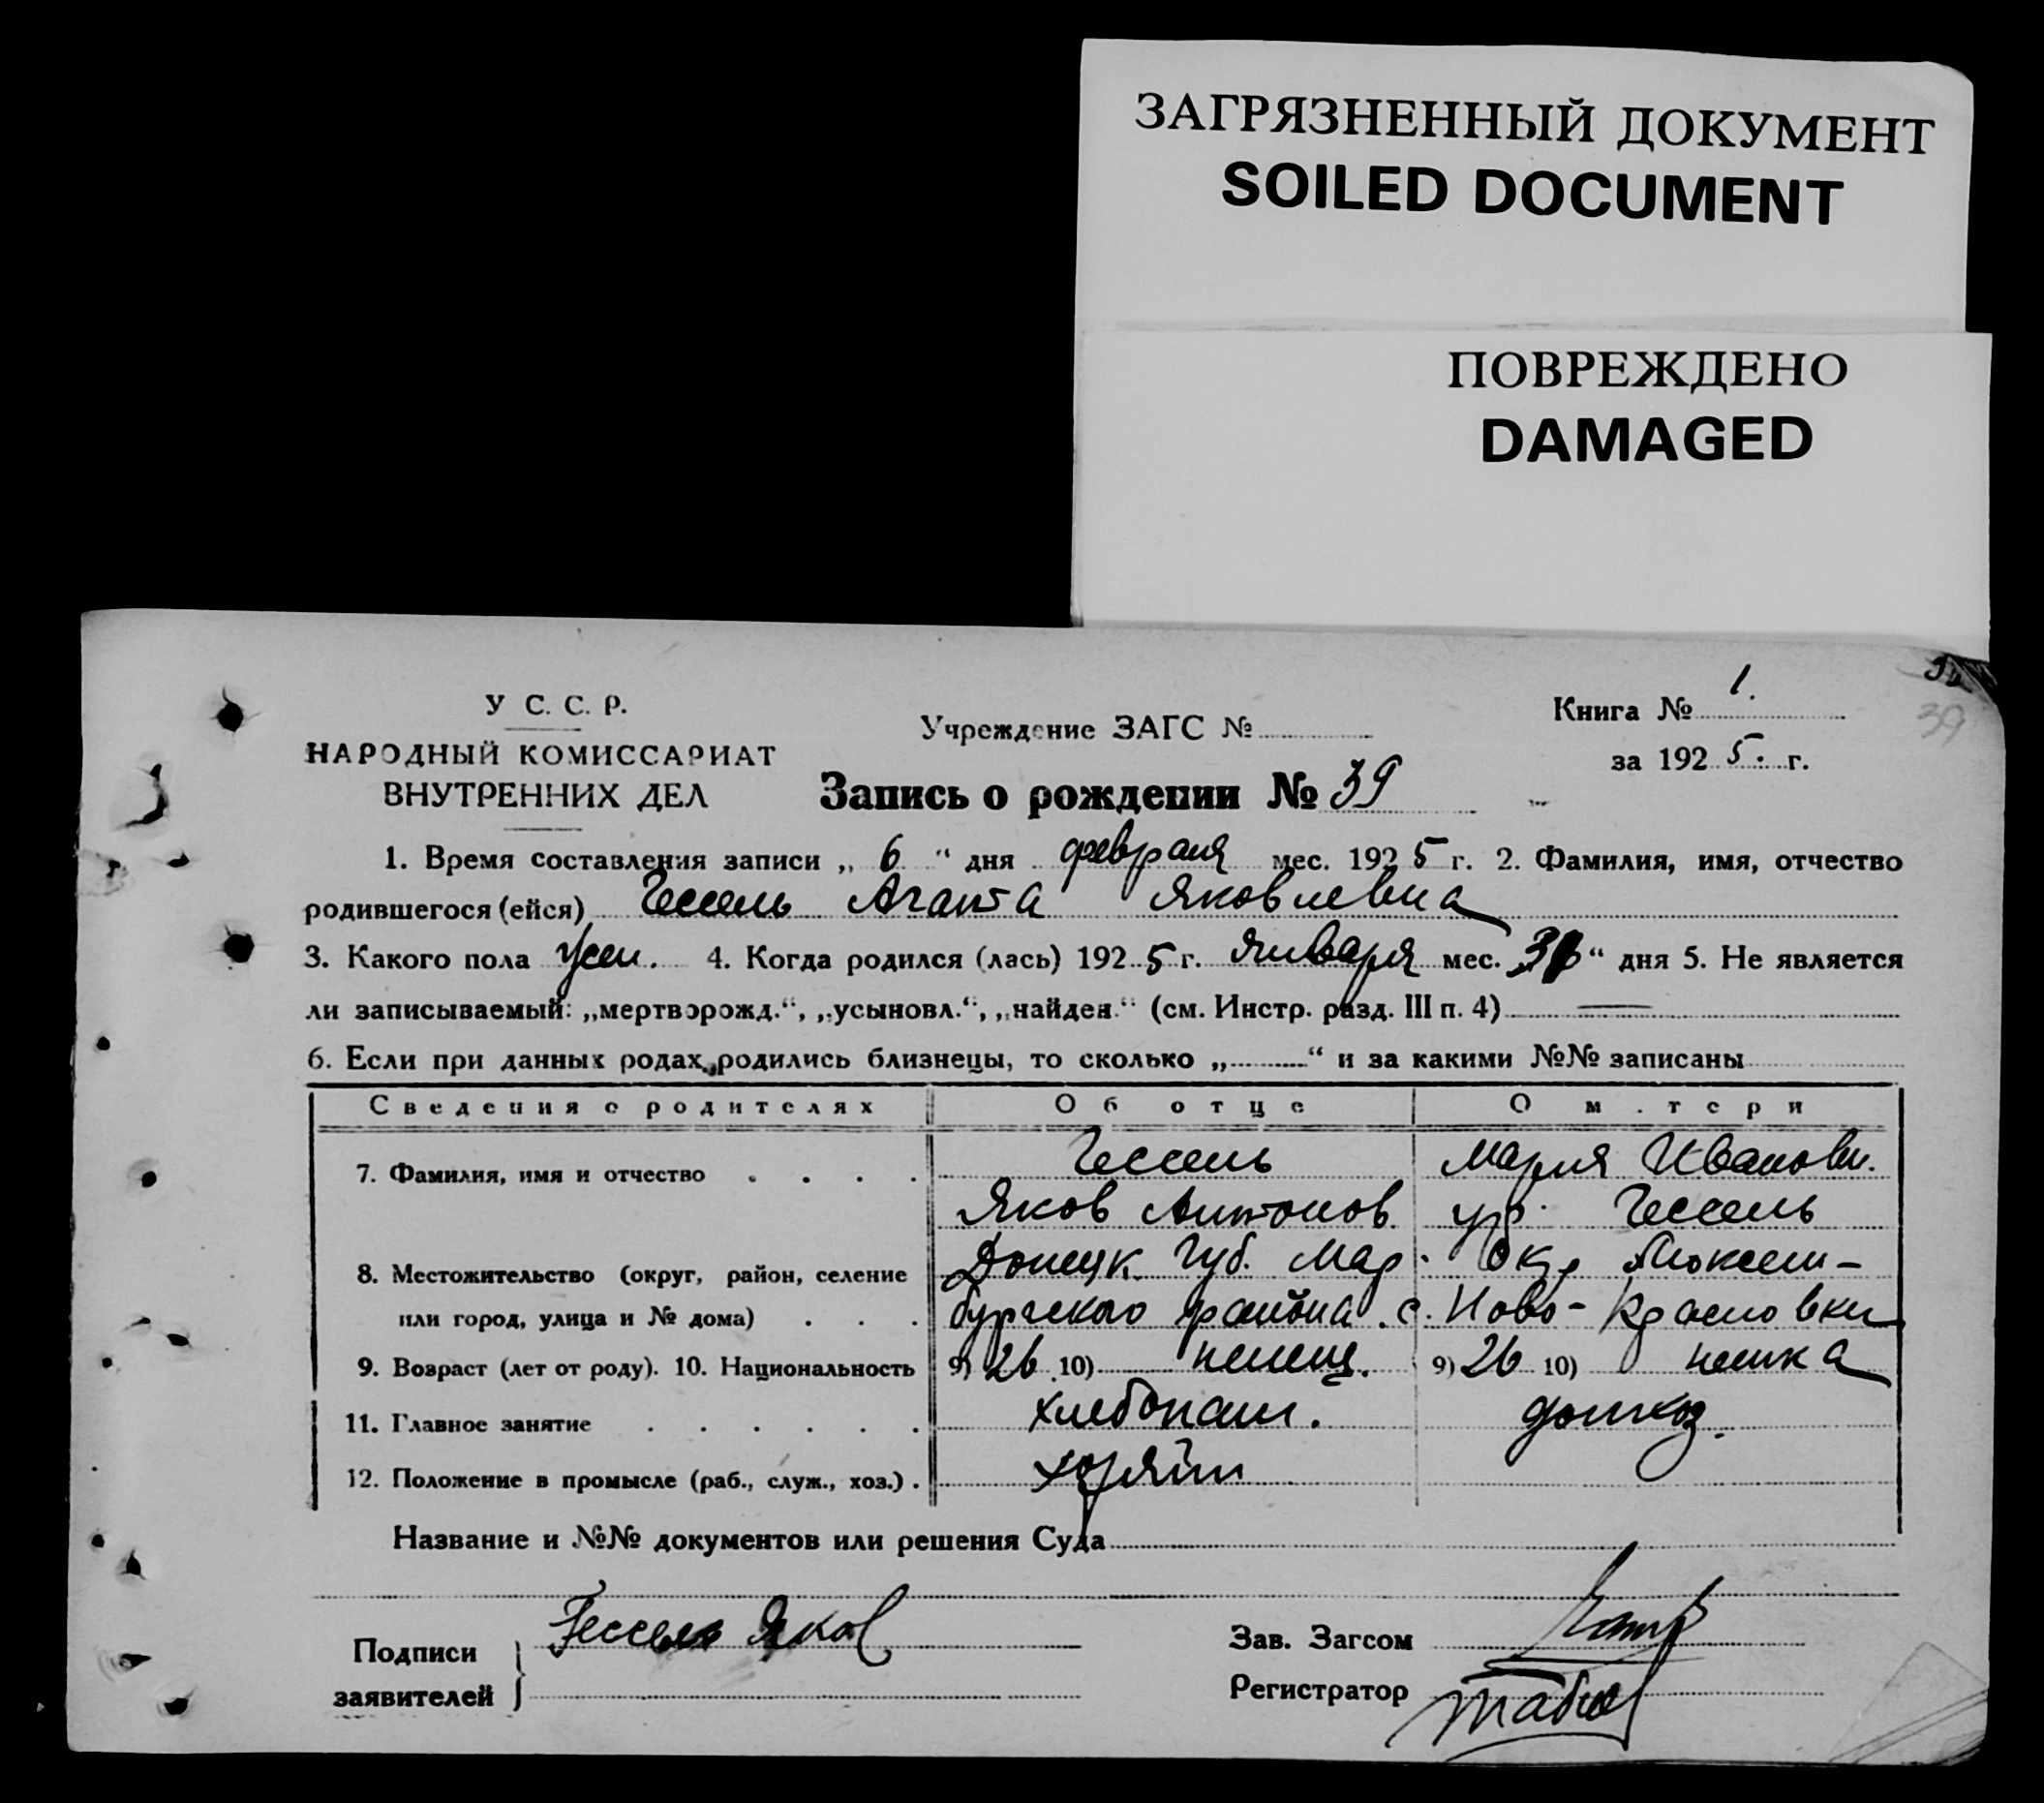 ЗАГРЯЗНЕННЫЙ ДОКУМЕНТ
SOILED DOCUMENT
ПОВРЕЖДЕНО
DAMAGED
39
У С. С. Р.
НАРОДНЫЙ КОМИССАРИАТ
ВНУТРЕННИХ ДЕЛ
Учреждение ЗАГС №
Книга № 1.
за 1925. г.
Запись о рождении № 39
1. Время составления записи „ 6 “ дня февраля мес. 1925 г. 2. Фамилия, имя, отчество
родившегося (ейся) Гессель Агата Яковлевна
3. Какого пола жен. 4. Когда родился (лась) 1925 г. января мес. “ дня 5. Не является
ли записываемый: „мертворожд.“, „усыновл.“, „найден.“ (см. Инстр. разд. III п. 4)
6. Если при данных родах родились близнецы, то сколько „ “ и за какими №№ записаны
Сведения о родителях Об отце О матери
7. Фамилия, имя и отчество Гессель Мария Ивановн.
Яков Антонов ур. Гессель
8. Местожительство (округ, район, селение Донецк. Губ. Мар. Окр Люксем-
или город, улица и № дома) бургского района с. Ново-Красновки
9. Возраст (лет от роду). 10. Национальность 9) 26 10) немец. 9) 26 10) немка
11. Главное занятие хлебопаш. домхоз.
12. Положение в промысле (раб., служ., хоз.) хозяин
Название и №№ документов или решения Суда
Подписи
заявителей
Гессель Яков
Зав. Загсом
Регистратор